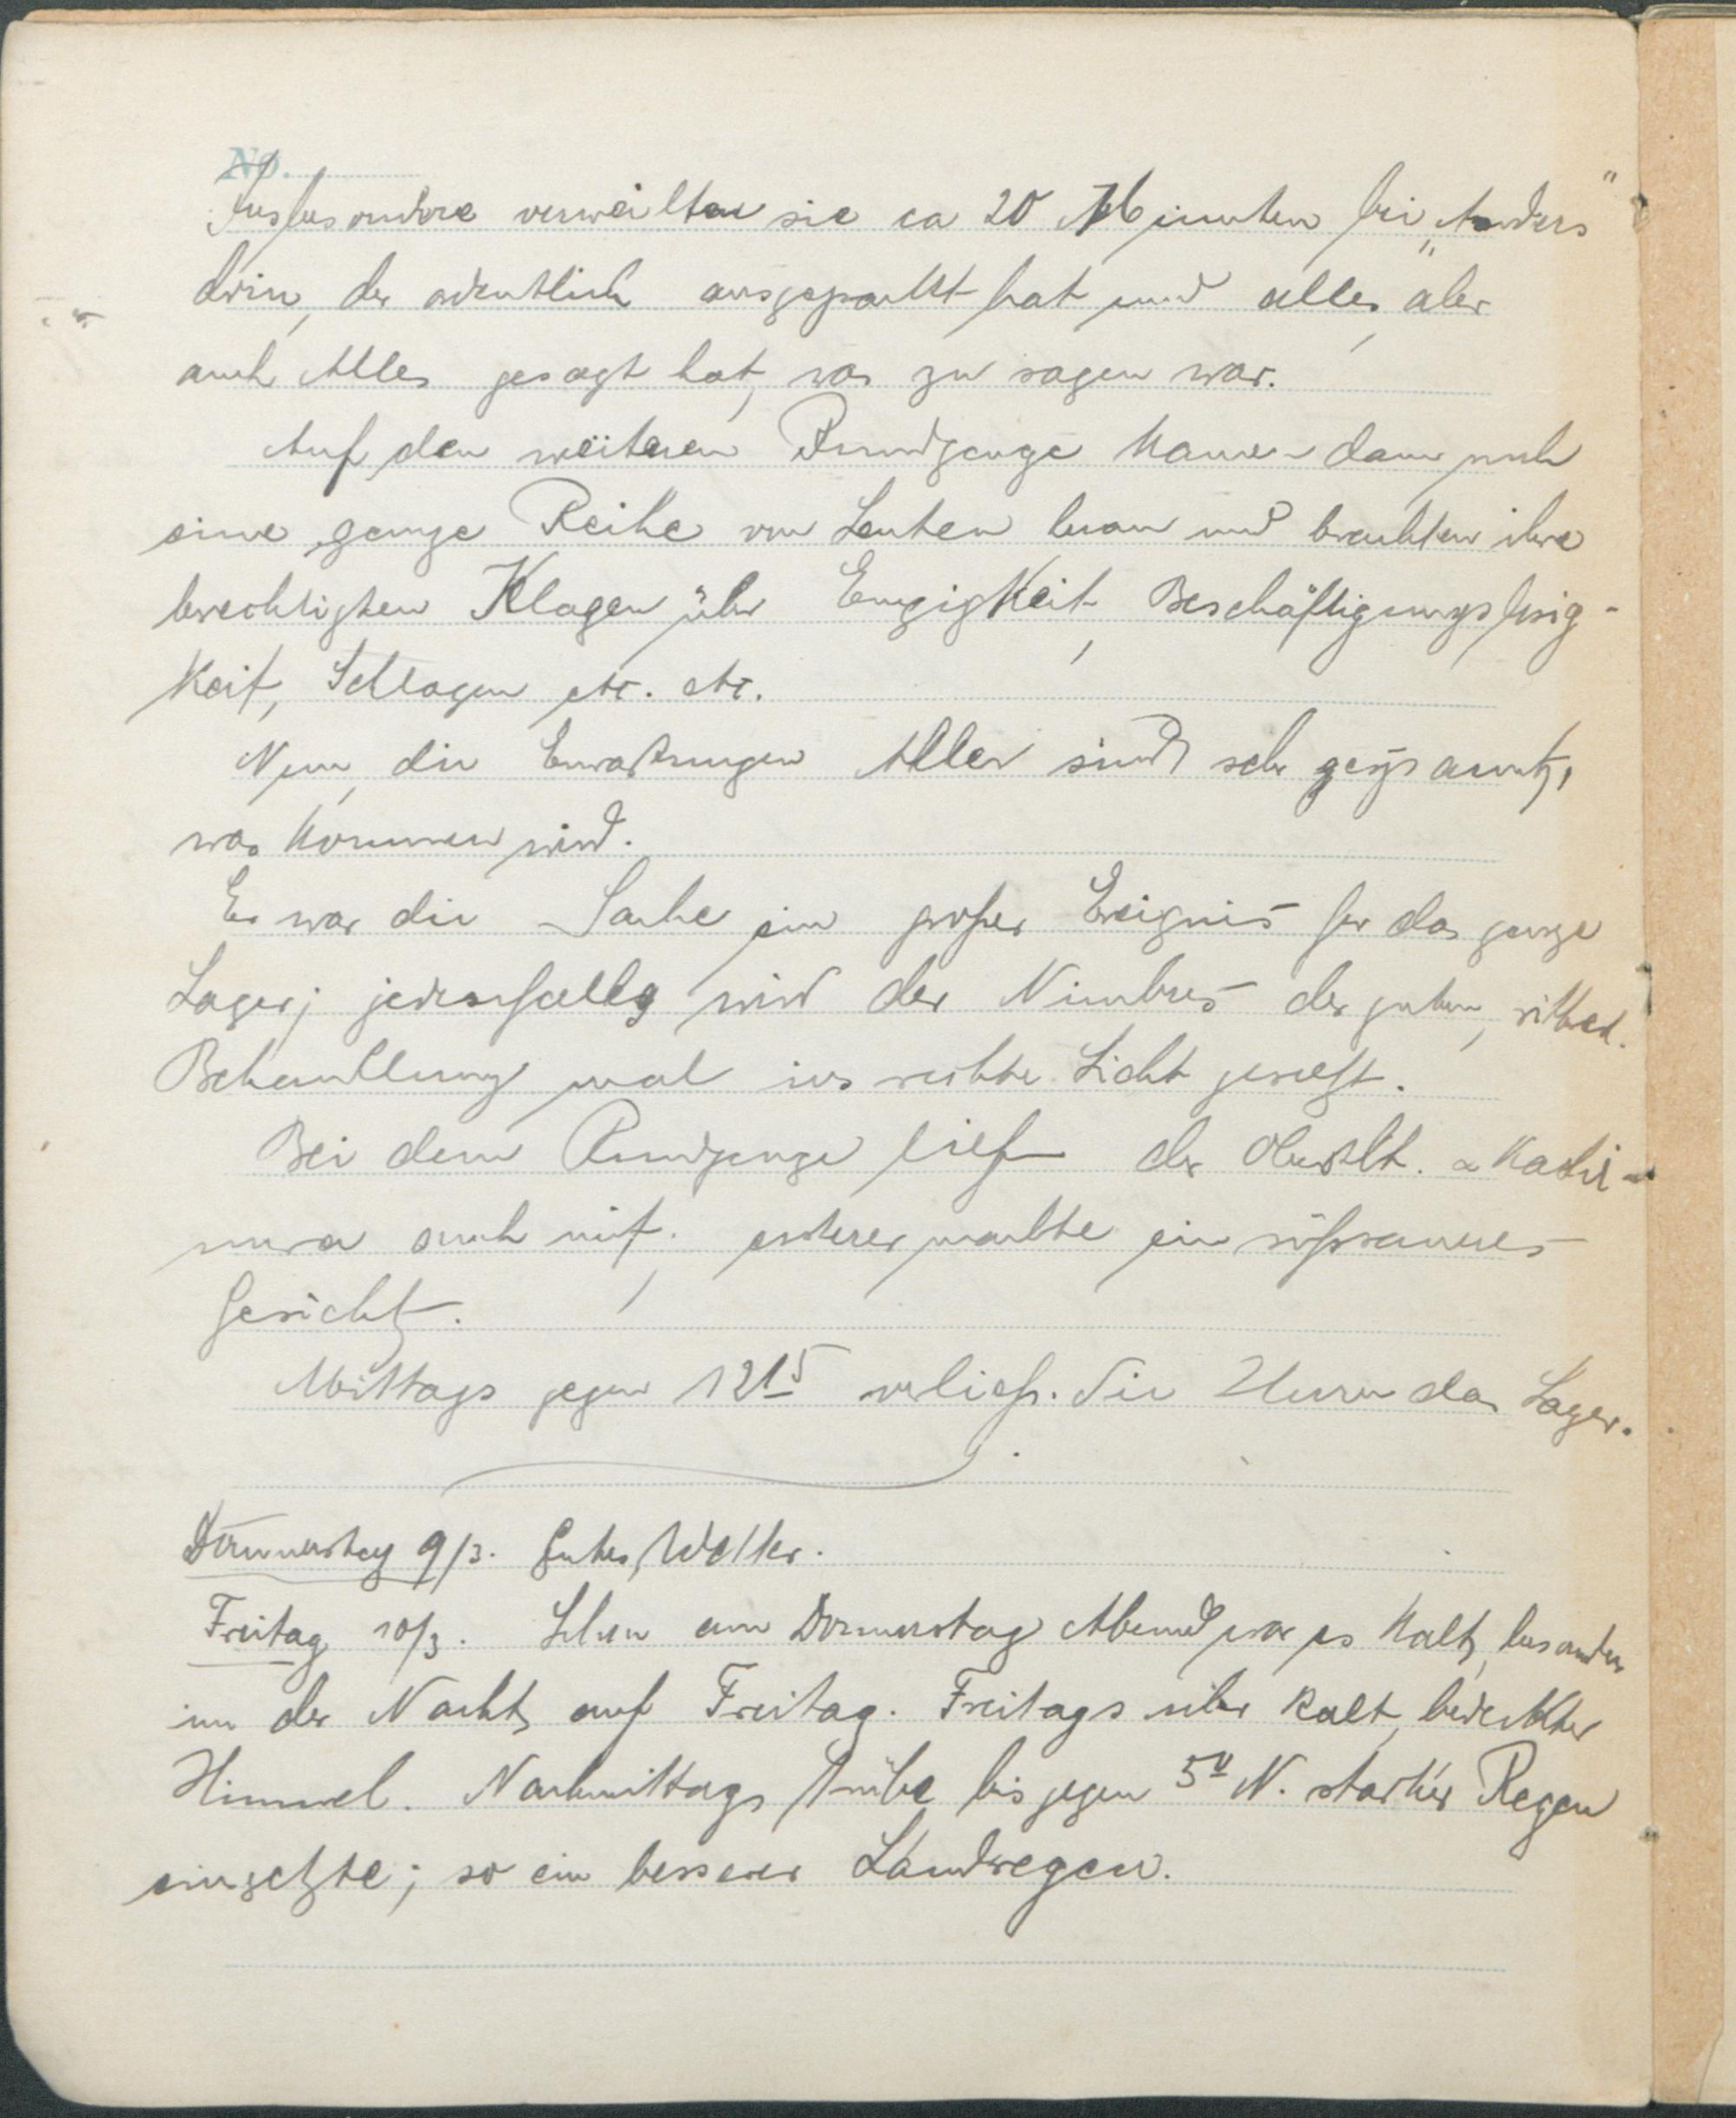 No.
Insbesondere verweilten sie ca 20 Minuten bei „Anders"
drin, der ordentlich ausgepackt hat und alles, aber
auch Alles gesagt hat, was zu sagen war.
Auf dem weiteren Rundgange kamen dann noch
eine ganze Reihe von Leuten heran und brachten ihre
berechtigten Klagen über Engigkeit, Beschäftigungslosig-
keit, Schlagen etc. etc.
Nun, die Erwartungen Aller sind sehr gespannt,
was kommen wird.
Es war die Sache ein großes Ereignis für das ganze
Lager; jedenfalls wird der Nimbus der guten, ritterl.
Behandlung mal ins rechte Licht gesetzt.
Bei dem Rundgange lief der Oberstlt. & Kachi-
mura auch mit; ersterer machte ein süßsaures
Gesicht.
Mittags gegen 12 15 verließ. die Herren das Lager.
Donnerstag 9/3. Gutes Wetter.
Freitag 10/3. Schon am Donnerstag Abend war es kalt, besonders
in der Nacht auf Freitag. Freitags über kalt, bedeckter
Himmel. Nachmittags trübe bis gegen 5 U N. starker Regen
einsetzte; so ein besserer Landregen.